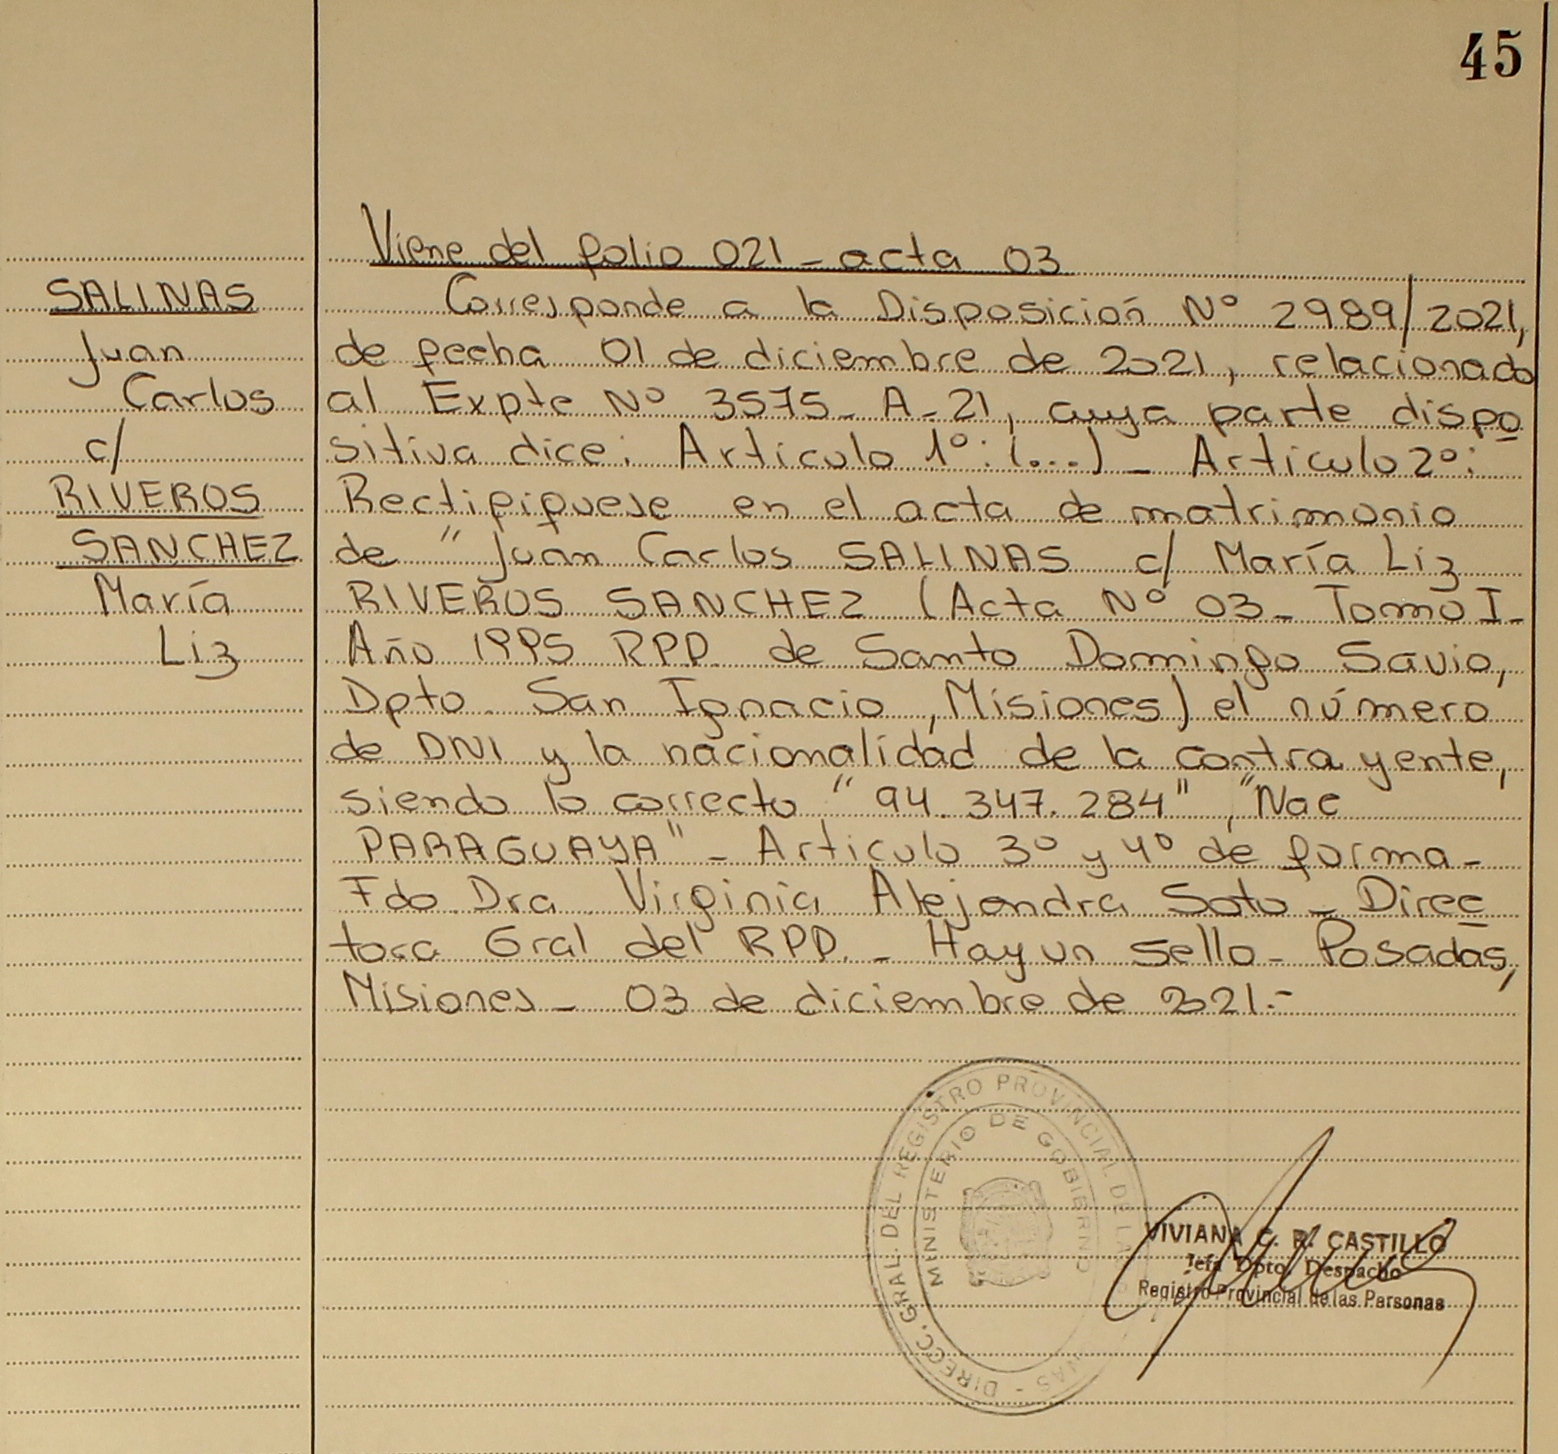 45
Viene del folio 021 - acta 03
SALINAS
Juan
Carlos
c/
RIVEROS
SANCHEZ
María
Liz
Corresponde a la Disposición Nº 2989/2021,
de fecha 01 de diciembre de 2021, relacionado
al Expte Nº 3575- A-21, cuya parte dispo
sitiva dice: Articulo 1º: (...) - Articulo 2º:
Rectifiquese en el acta de matrimonio
de "Juan Carlos SALINAS c/ María Liz
RIVEROS SANCHEZ (Acta Nº 03- Tomo I-
Año 1995 RPP. de Santo Domingo Savio,
Dpto. San Ignacio, Misiones) el número
de DNI y la nacionalidad de la contrayente,
siendo lo correcto "94.347.284", "Nac
PARAGUAYA" - Articulo 3º y 4º de forma -
Fdo Dra. Virginia Alejandra Soto - Direc
tora Gral del RPP. - Hay un sello - Posadas,
Misiones - 03 de diciembre de 2021.-
DIRECC. GRAL. DEL REGISTRO PROVINCIAL DE LAS
MINISTERIO DE GOBIERNO
VIVIANA C. R. CASTILLO
Jefa Dpto. Despacho
Registro Provincial de las Personas